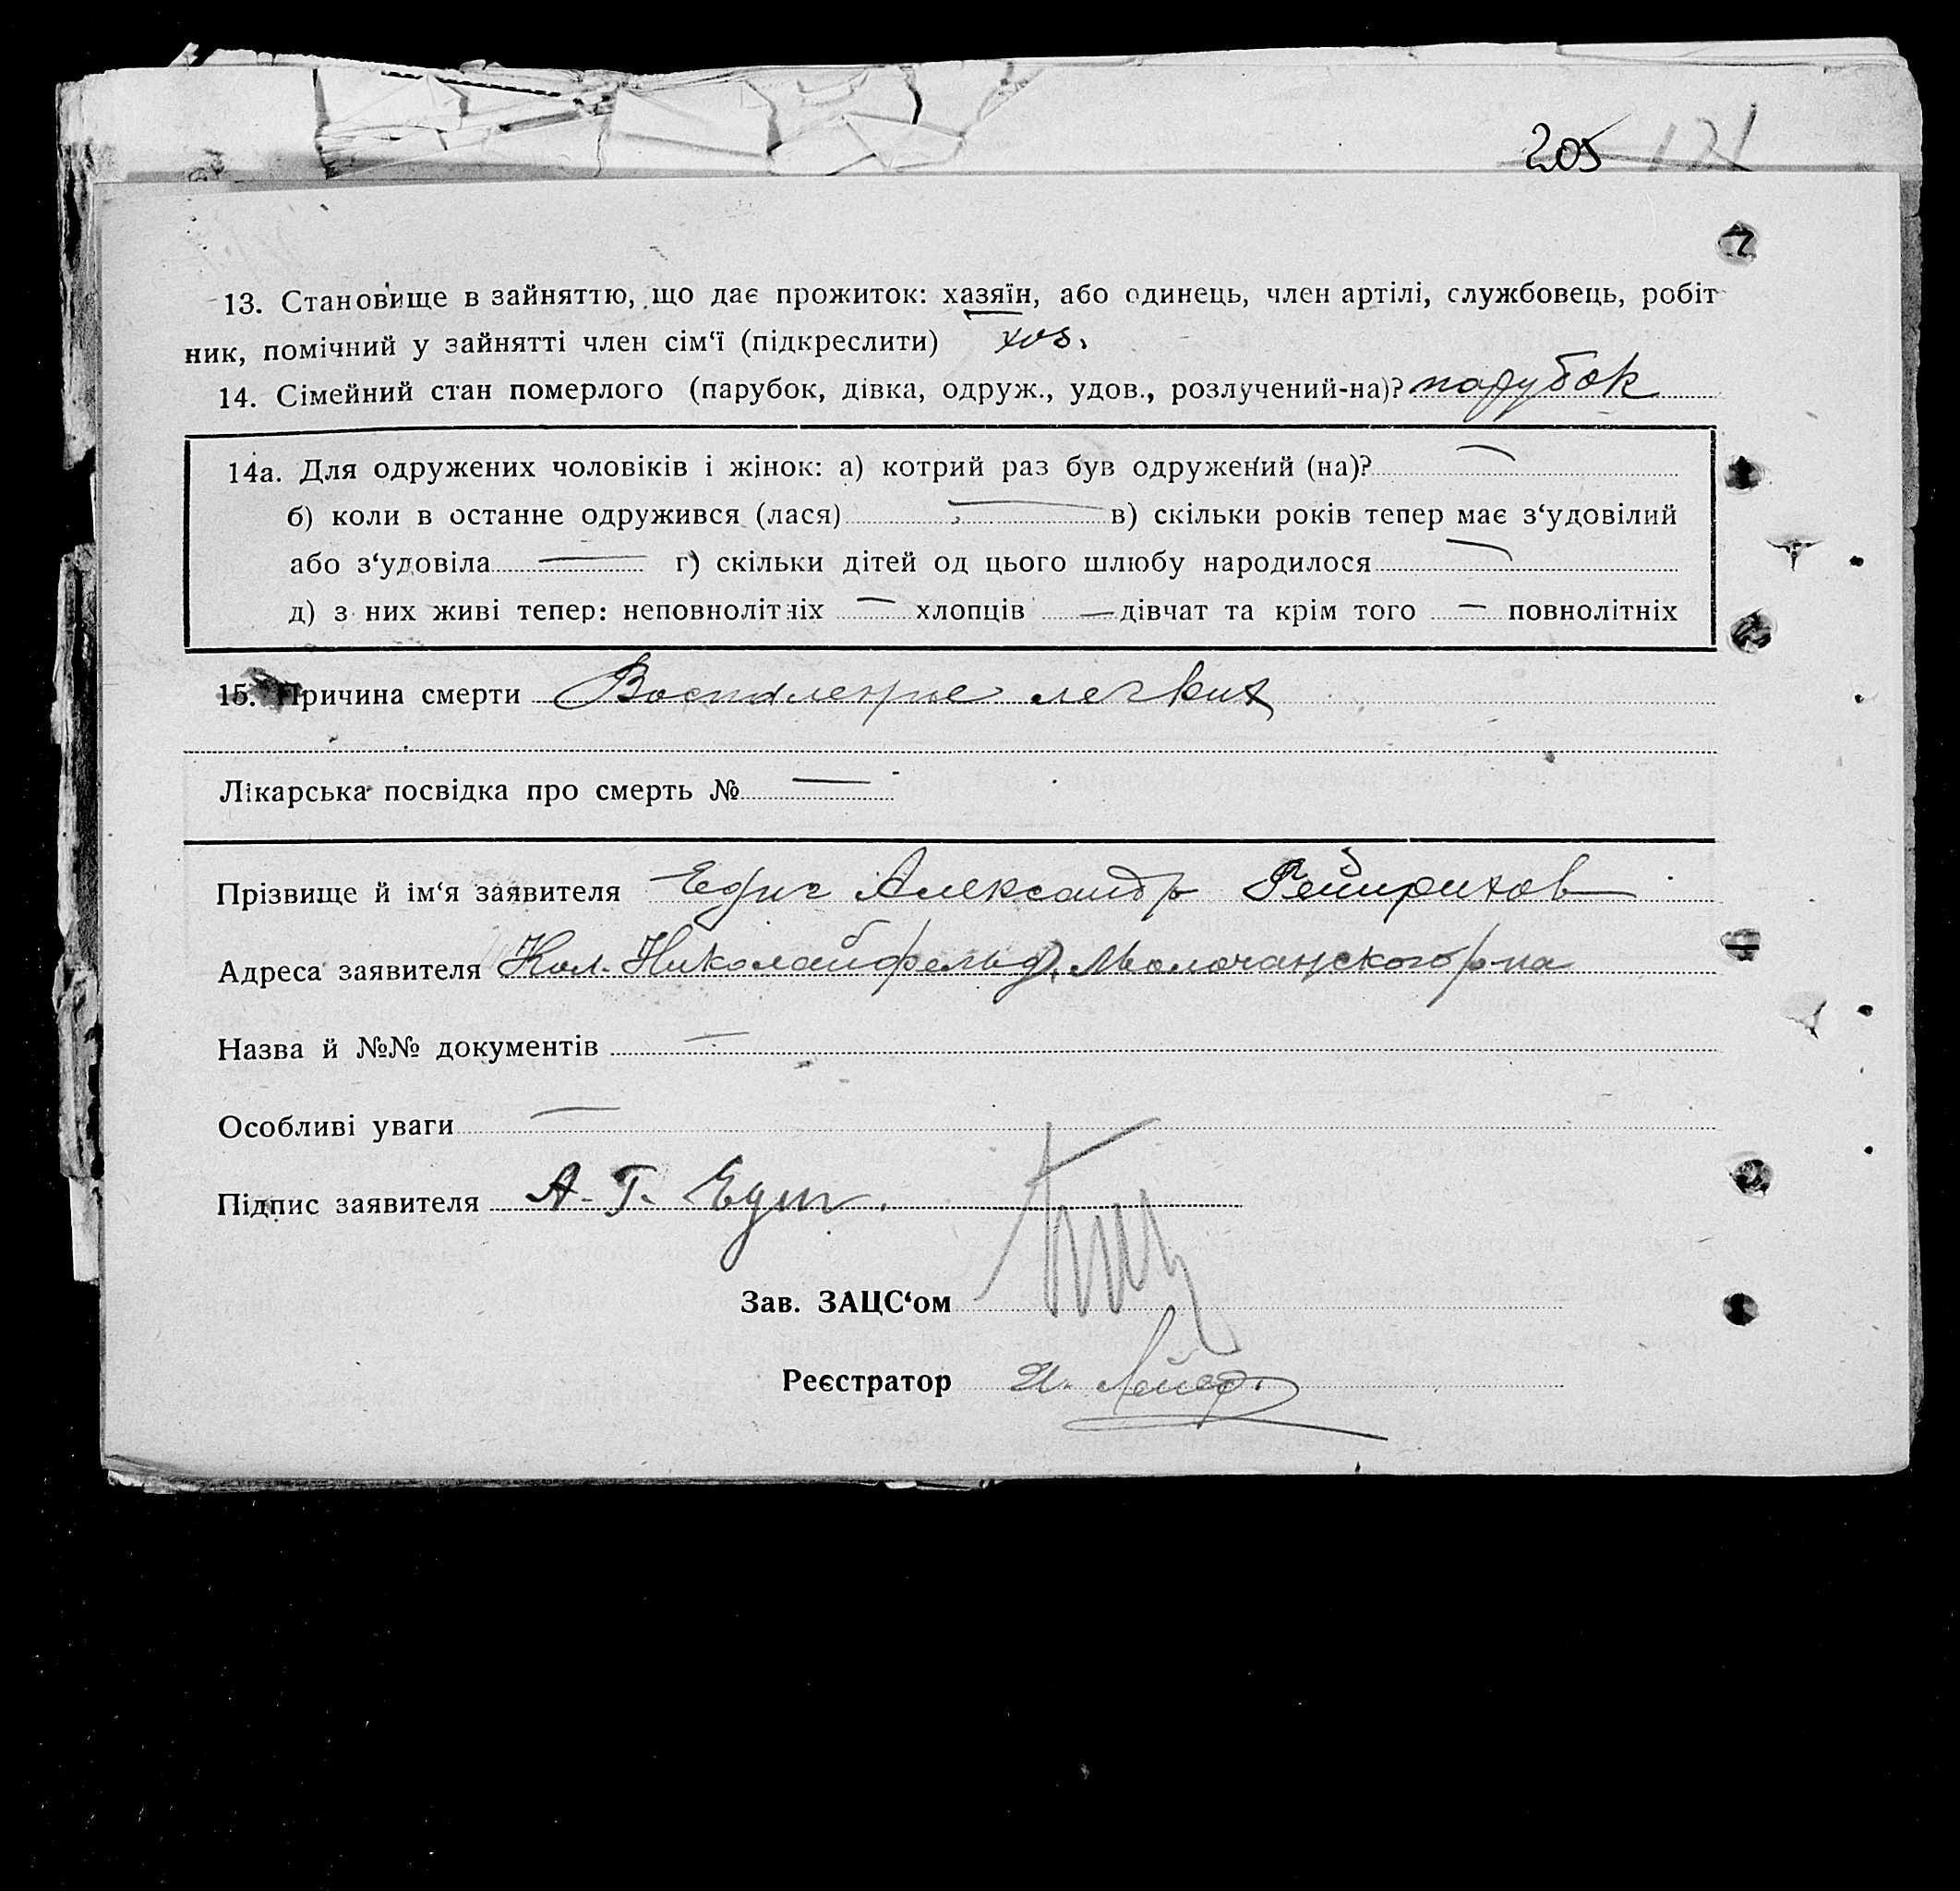 205 121
13. Становище в зайняттю, що дає прожиток: хазяїн, або одинець, член артілі, службовець, робіт
ник, помічний у зайнятті член сім‘ї (підкреслити) хоз.
14. Сімейний стан померлого (парубок, дівка, одруж., удов., розлучений-на)? парубок
14а. Для одружених чоловіків і жінок: а) котрий раз був одружений (на)? —
б) коли в останне одружився (лася) — в) скільки років тепер має з‘удовілий
або з‘удовіла — г) скільки дітей од цього шлюбу народилося —
д) з них живі тепер: неповнолітніх — хлопців — дівчат та крім того — повнолітніх
15. Причина смерти Воспаление легких
Лікарська посвідка про смерть № —
Прізвище й ім‘я заявителя Александр
Адреса заявителя Кол. Николайфельд, Молочанского р-на
Назва й №№ документів —
Особливі уваги —
Підпис заявителя А. Г.
Зав. ЗАЦС‘ом
Реєстратор